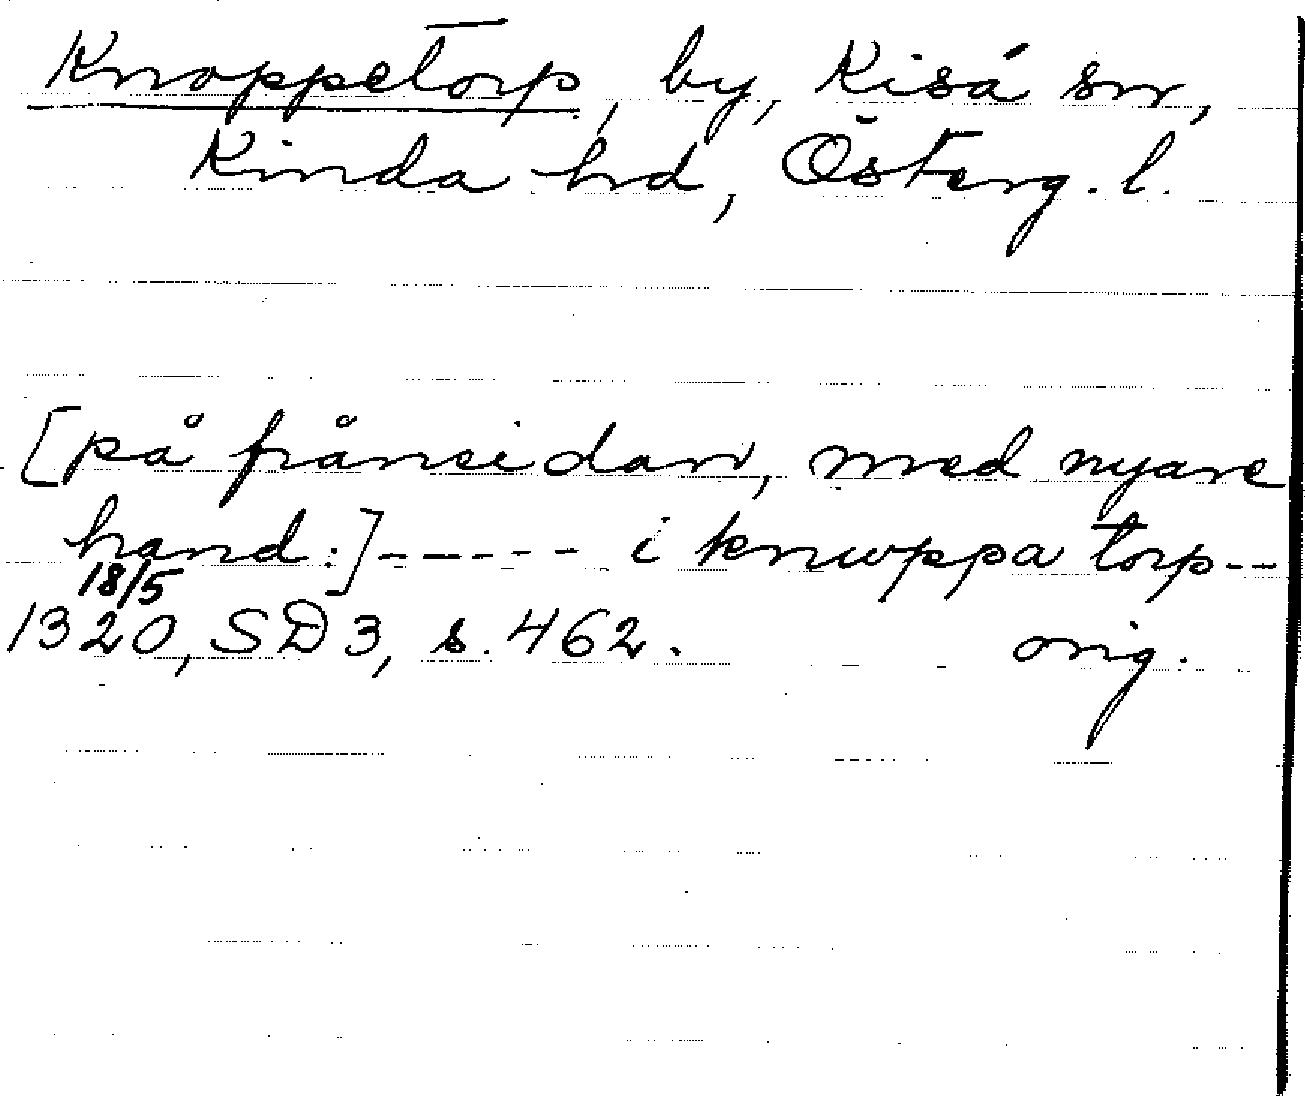 Knoppetorp, by, Kisa sn,
Kinda hd, Österg. l.
[på frånsidan, med nyare
hand:]------ i knwppa torp--
18/5
1320, SD3, s. 462. orig.